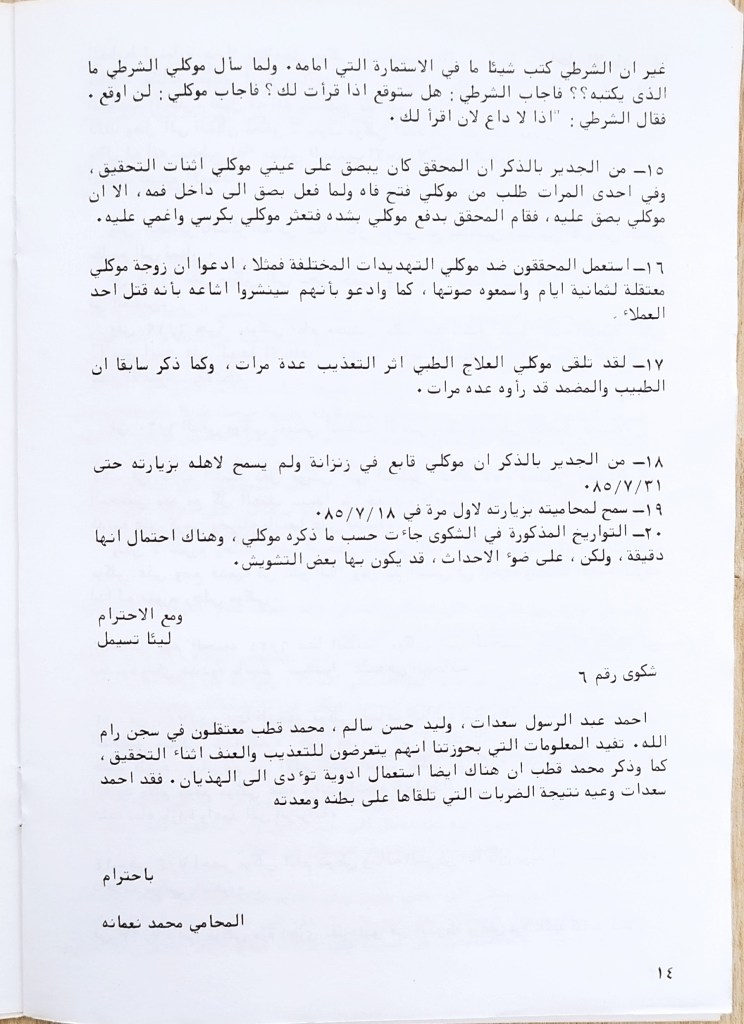 غير ان الشرطي كتب شيئا ما في الاستمارة التي امامه. ولما سأل موكلي الشرطي ما
الذى يكتبه؟؟ فاجاب الشرطي: هل ستوقع اذا قرأت لك؟ فاجاب موكلي: لن اوقع.
فقال الشرطي: "اذا لا داع لان اقرأ لك.
١٥ــ من الجدير بالذكر ان المحقق كان يبصق على عيني موكلي اثنات التحقيق،
وفي احدى المرات طلب من موكلي فتح فاه ولما فعل بصق الى داخل فمه، الا ان
موكلي بصق عليه، فقام المحقق بدفع موكلي بشده فتعثر موكلي بكرسي واغمي عليه.
١٦ــ استعمل المحققون ضد موكلي التهديدات المختلفة فمثلا، ادعوا ان زوجة موكلي
معتقلة لثمانية ايام واسمعوه صوتها، كما وادعو بأنهم سينشروا اشاعه بأنه قتل احد
العملاء.
١٧ــ لقد تلقى موكلي العلاج الطبي اثر التعذيب عدة مرات، وكما ذكر سابقا ان
الطبيب والمضمد قد رأوه عده مرات.
١٨ــ من الجدير بالذكر ان موكلي قابع في زنزانة ولم يسمح لاهله بزيارته حتى
٨٥/٧/٣١.
١٩ــ سمح لمحاميته بزيارته لاول مرة في ٨٥/٧/١٨.
٢٠ــ التواريخ المذكورة في الشكوى جاءت حسب ما ذكره موكلي، وهناك احتمال انها
دقيقة، ولكن، على ضوء الاحداث، قد يكون بها بعض التشويش.
ومع الاحترام
ليئا تسيمل
شكوى رقم ٦
احمد عبد الرسول سعدات، وليد حسن سالم، محمد قطب معتقلون في سجن رام
الله. تفيد المعلومات التي بحوزتنا انهم يتعرضون للتعذيب والعنف اثناء التحقيق،
كما وذكر محمد قطب ان هناك ايضا استعمال ادوية توءدى الى الهذيان. فقد احمد
سعدات وعيه نتيجة الضربات التي تلقاها على بطنه ومعدته
باحترام
المحامي محمد نعمانه
١٤